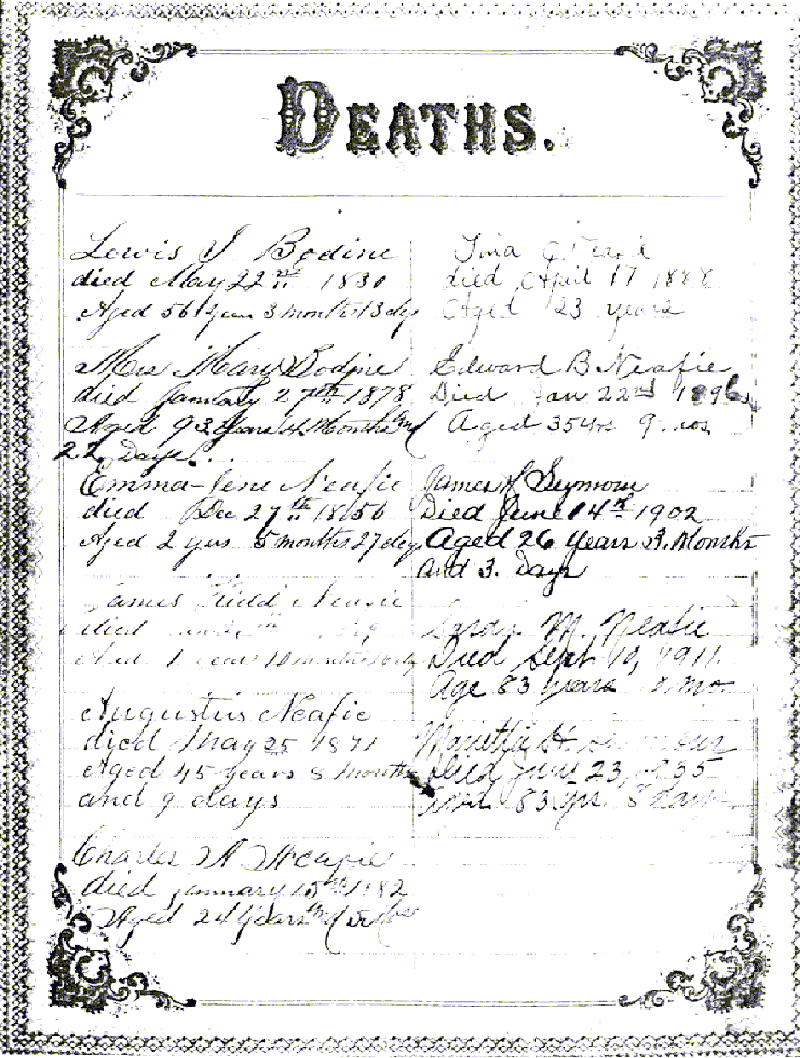 DEATHS.
Lewis J Bodine
died May 22nd 1830
Aged 56 years 3 months 13 dys
Mrs Mary Bodine
died January 27th 1878
Aged 93 Years 4 Months and
22 Days
Emma-Jene Neafie
died Dec 27th 1856
Aged 2 yrs 5 months 27 days
James Kidd Neafie
died
Aged 1 year 10 months
Augustus Neafie
died May 25 1871
Aged 45 years 8 months
and 9 days
Charles A Neafie
died January 15th 1882
Aged 24 Years
Tina
died April 17 1888
Aged 23 years
Edward B Neafie
Died Jan 22nd 1896
Aged 35 yrs 9 mos
James Seymour
Died June 14th 1902
Aged 26 Years 3. Months
and 3. Days
M. Neafie
Died Sept 10, 1911.
Age 83 years 8 mo.
H.
Died June 23,
83 yr. 8 Days